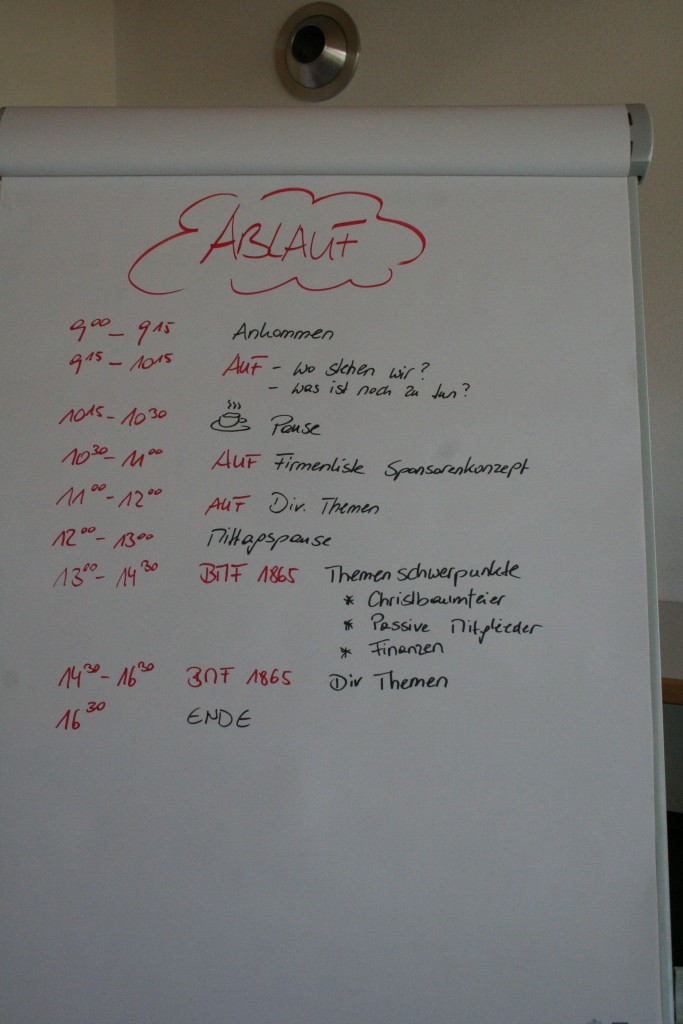 ABLAUF
9⁰⁰ – 9¹⁵ Ankommen
9¹⁵ – 10¹⁵ AUF – wo stehen wir?
– was ist noch zu tun?
10¹⁵ – 10³⁰ Pause
10³⁰ – 11⁰⁰ AUF Firmenliste Sponsorenkonzept
11⁰⁰ – 12⁰⁰ AUF Div. Themen
12⁰⁰ – 13⁰⁰ Mittagspause
13⁰⁰ – 14³⁰ BMF 1865 Themenschwerpunkte
* Christbaumfeier
* Passive Mitglieder
* Finanzen
14³⁰ – 16³⁰ BMF 1865 Div Themen
16³⁰ ENDE